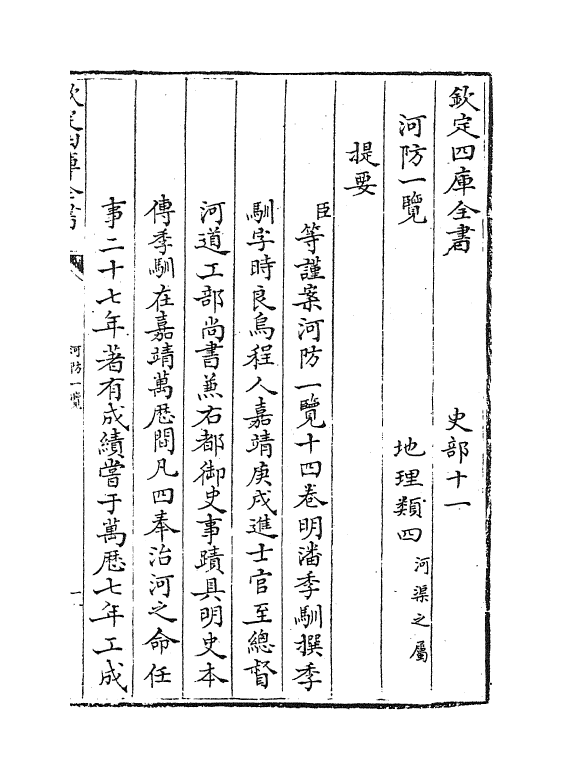 欽定四庫全書　史部十一
河防一覽　地理類四　河渠之屬
提要
臣等謹案河防一覽十四卷明潘季馴撰季
馴字時良烏程人嘉靖庚戌進士官至總督
河道工部尚書兼右都御史事蹟具明史本
傳季馴在嘉靖萬厯間凡四奉治河之命任
事二十七年著有成績嘗于萬厯七年工成
欽定四庫全書
河防一覽
一